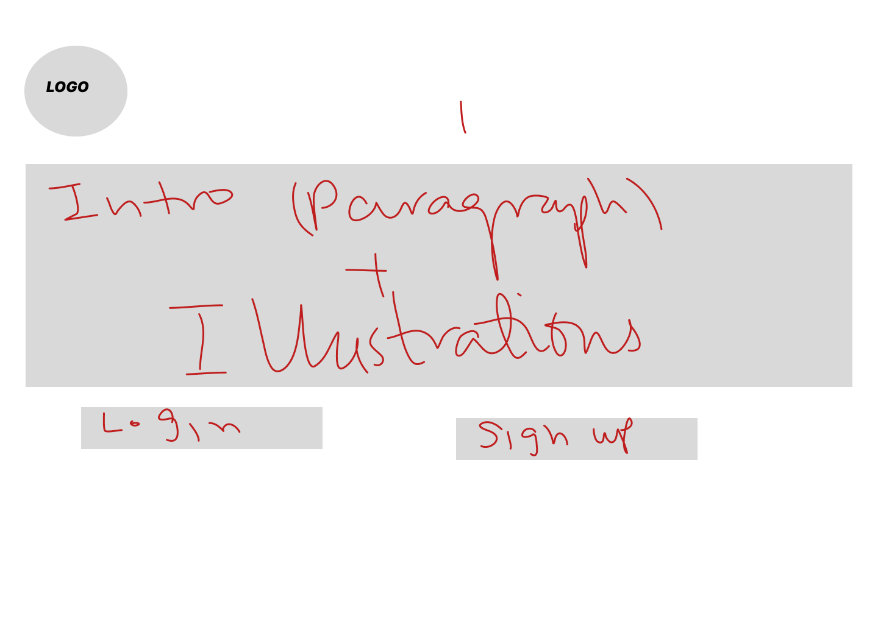 LOGO
1
Intro (Paragraph)
+
Illustrations
Login
Sign up